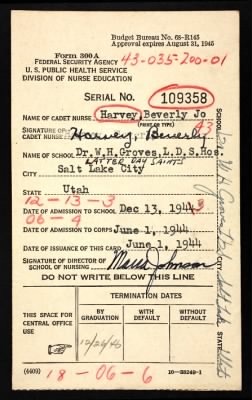 Budget Bureau No. 68-R145
Approval expires August 31, 1945
Form 300A
FEDERAL SECURITY AGENCY
43-035-200-01
U. S. PUBLIC HEALTH SERVICE
DIVISION OF NURSE EDUCATION
SERIAL NO. 109358
NAME OF CADET NURSE Harvey, Beverly Jo
(PRINT OR TYPE)
43
SIGNATURE OF CADET NURSE Harvey, Beverly
NAME OF SCHOOL Dr. W.H. Groves, L.D.S. Hos.
LATTER DAY SAINTS
CITY Salt Lake City
STATE Utah
12-13-3
DATE OF ADMISSION TO SCHOOL Dec 13, 1943
06-4
DATE OF ADMISSION TO CORPS June 1, 1944
DATE OF ISSUANCE OF THIS CARD June 1, 1944
SIGNATURE OF DIRECTOR OF SCHOOL OF NURSING Maria Johnson
DO NOT WRITE BELOW THIS LINE
THIS SPACE FOR CENTRAL OFFICE USE
TERMINATION DATES
BY GRADUATION
WITH DEFAULT
WITHOUT DEFAULT
12/26/46
(4409)
18-06-6
10-38249-1
SCHOOL
CITY
STATE